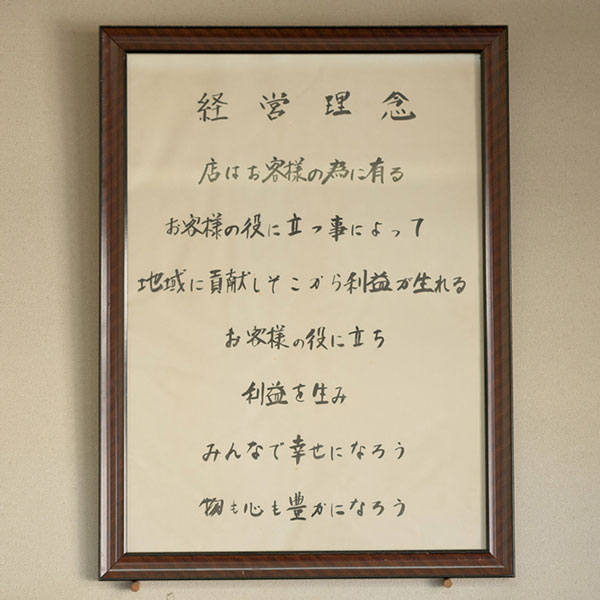 経営理念
店はお客様の為に有る
お客様の役に立つ事によって
地域に貢献しそこから利益が生れる
お客様の役に立ち
利益を生み
みんなで幸せになろう
物も心も豊かになろう